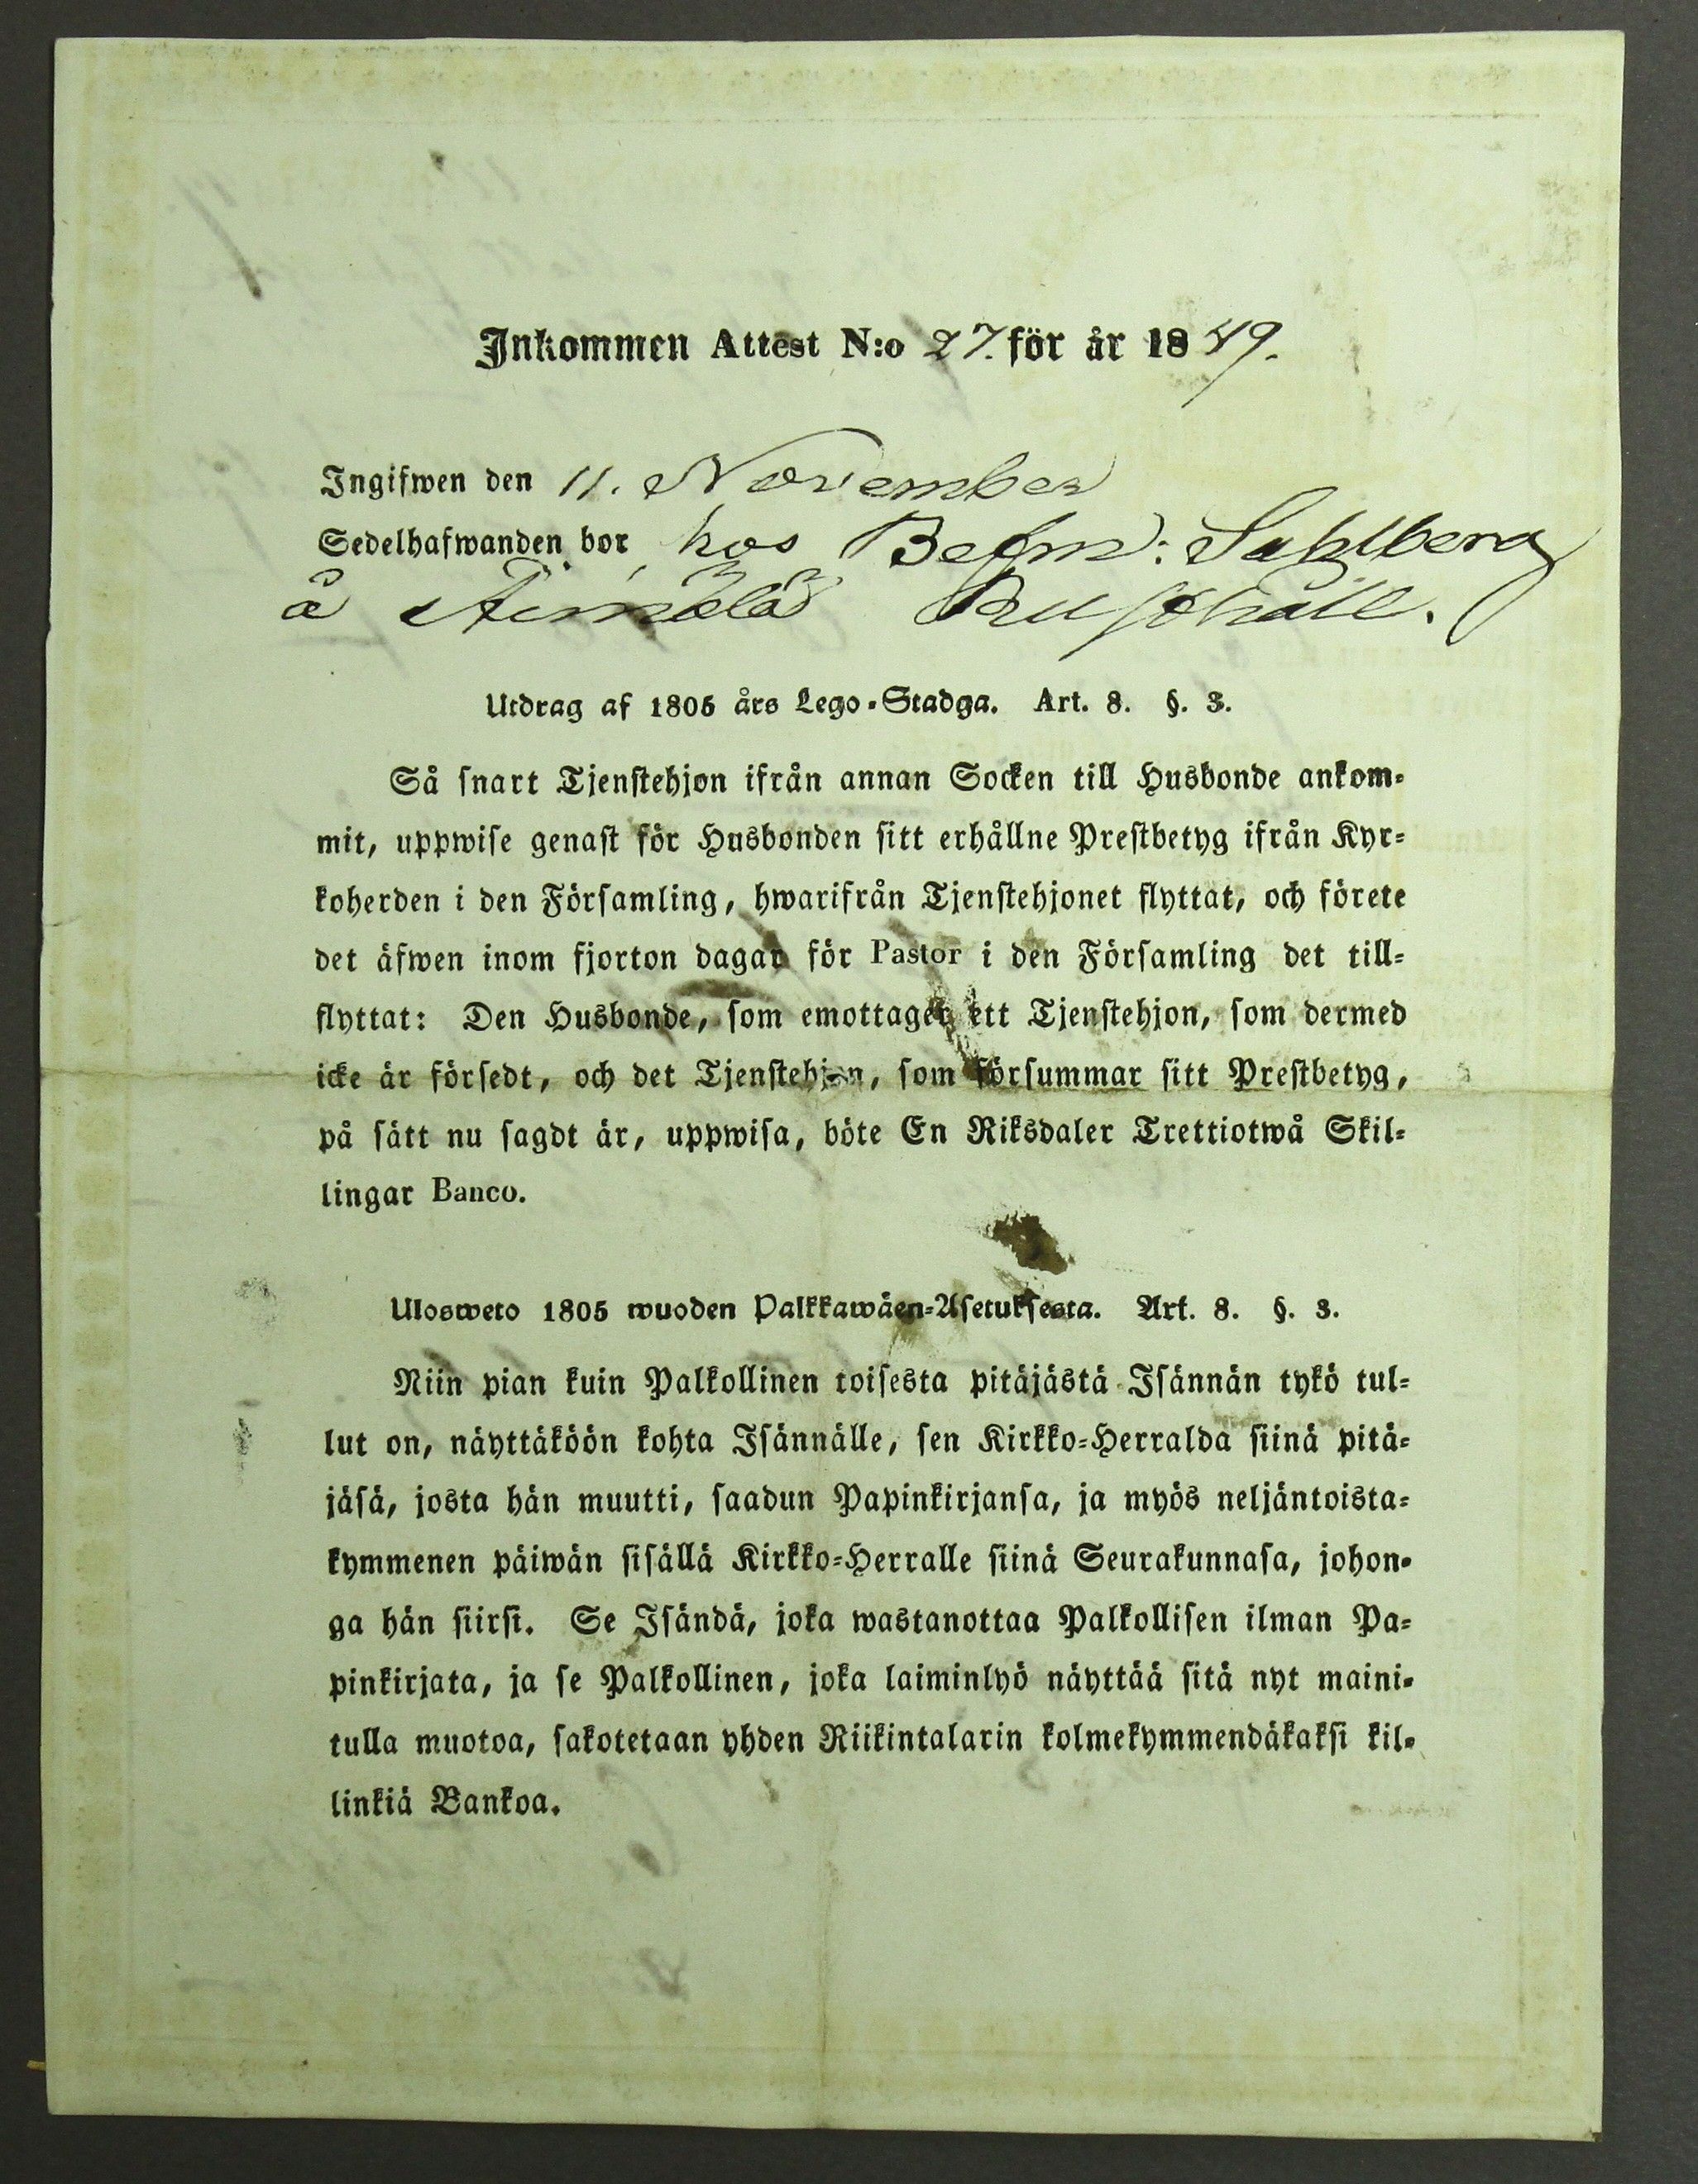 Inkommen Attest N:o 27. för år 1849.
Ingifwen den 11. November
Sedelhafwanden bor hos Befm: Sahlberg
å Rusthåll.
Utdrag af 1805 års Lego-Stadga. Art. 8. §. 3.
Så snart Tjenstehjon ifrån annan Socken till Husbonde ankom-
mit, uppwise genast för Husbonden sitt erhållne Prestbetyg ifrån Kyr-
koherden i den Församling, hwarifrån Tjenstehjonet flyttat, och förete
det äfwen inom fjorton dagar för Pastor i den Församling det till-
flyttat: Den Husbonde, som emottager ett Tjenstehjon, som dermed
icke är försedt, och det Tjenstehjon, som försummar sitt Prestbetyg,
på sätt nu sagdt är, uppwisa, böte En Riksdaler Trettiotwå Skil-
lingar Banco.
Ulosweto 1805 wuoden Palkkawäen-Asetuksesta. Art. 8. §. 3.
Niin pian kuin Palkollinen toisesta pitäjästä Isännän tykö tul-
lut on, näyttäköön kohta Isännälle, sen Kirkko-Herralda siinä pitä-
jäsä, josta hän muutti, saadun Papinkirjansa, ja myös neljäntoista-
kymmenen päiwän sisällä Kirkko-Herralle siinä Seurakunnasa, johon-
ga hän siirsi. Se Isändä, joka wastanottaa Palkollisen ilman Pa-
pinkirjata, ja se Palkollinen, joka laiminlyö näyttää sitä nyt maini-
tulla muotoa, sakotetaan yhden Riikintalarin kolmekymmendäkaksi kil-
linkiä Bankoa.